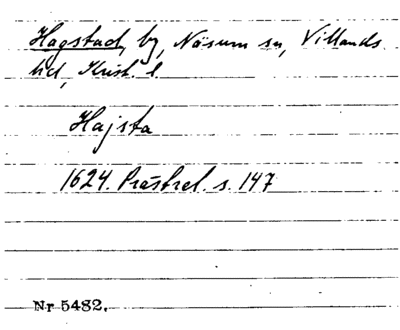 Hagstad, by, Näsum sn, Villands
hd, Krist. l.
Hajsta
1624. Prästrel. s. 147
Nr 5482.